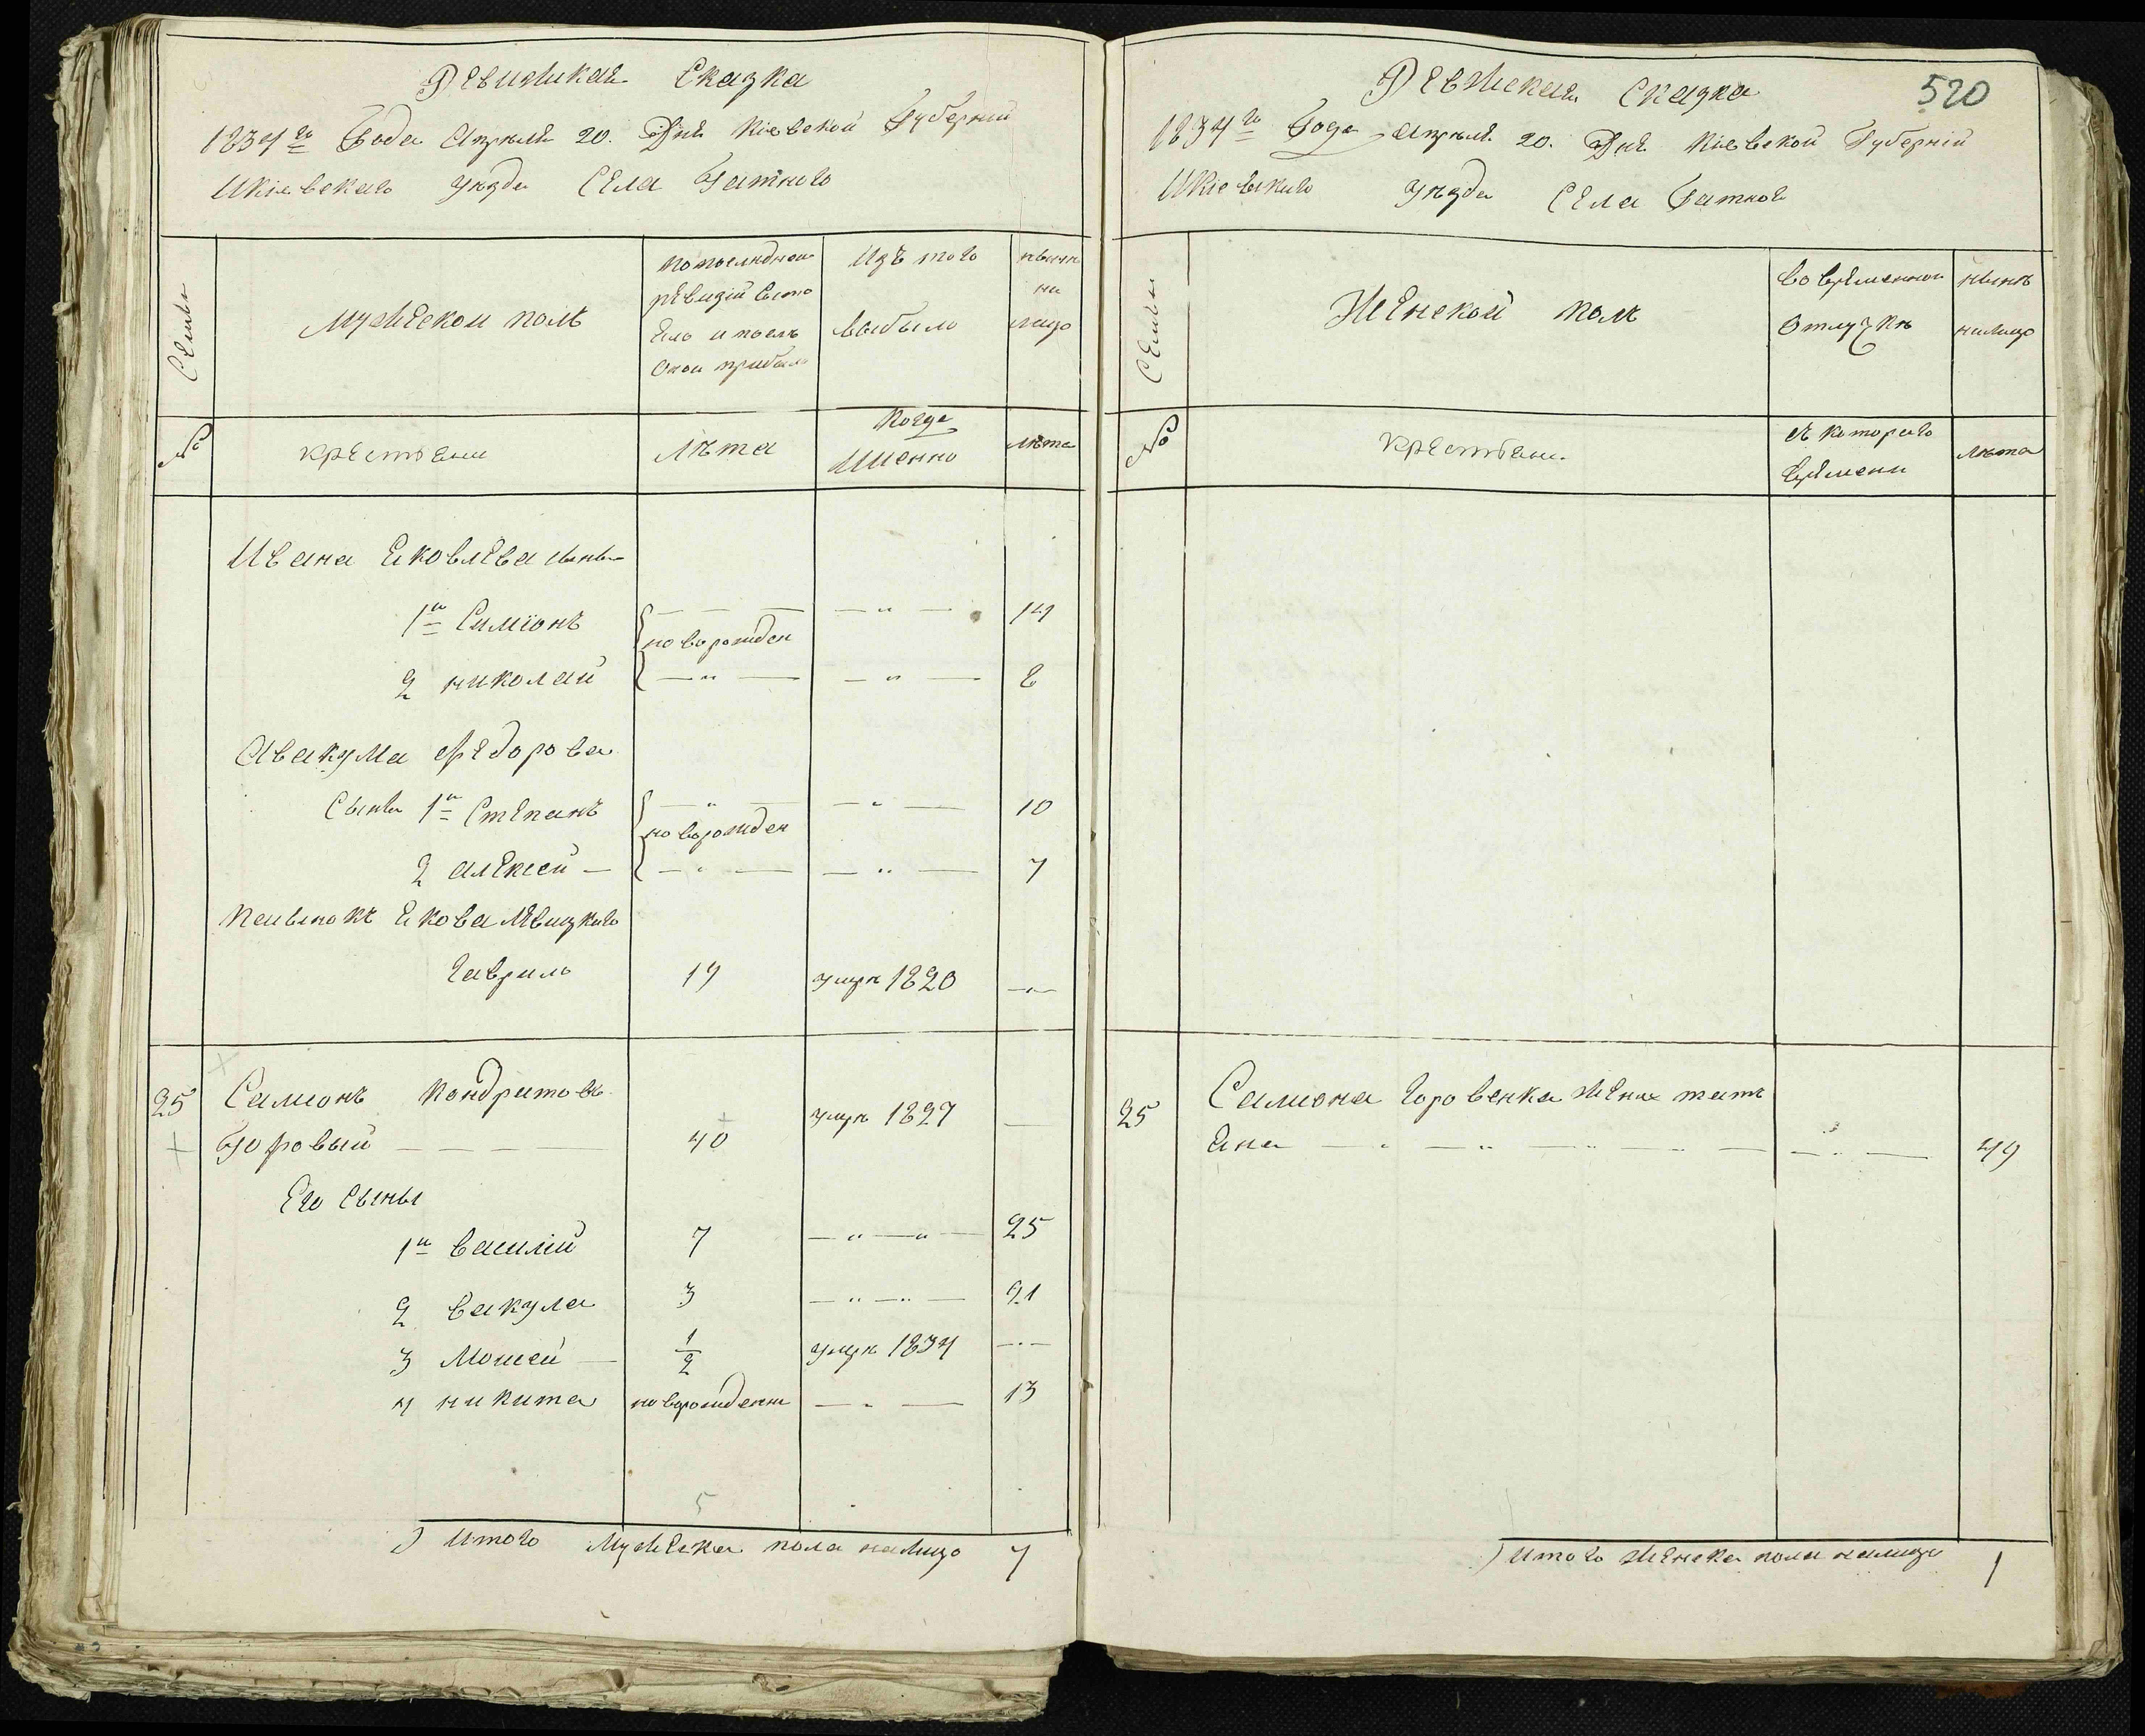 Ревижская Сказка
1834го Года Апреля 20. Дня Кіевской Губерніи
Икіевскаго уезда Села Гатного
Семьи
Мужеской полъ
По последней
ревизіи состо
яло и после
оной прибыло
Изъ того
выбыло
ныне
на
лицо
№
крестьяне
Лѣта
Когда
Именно
лѣта
Ивана Яковлева сыны
1й Симіонъ
новорожден
— " —
14
2 николай
— " —
— " —
8
Авакума Федорова
Сыны 1й Степанъ
— " —
новорожден
— " —
10
2 алексей —
— " —
— " —
7
Якова Левицкаго
гаврило
17
умре 1820
— " —
25
Самионъ Кондратовъ
Горовый — — — —
40
умре 1827
—
Его Сыны
1й василий
7
— " — " —
25
2 вакула
3
— " — " —
21
3 Моисей —
1/2
умре 1834
— " —
4 никита
новорожденн
— " —
13
5
Итого Мужеска пола налицо 7
520
Ревижская Сказка
1834го Года Апреля 20. Дня Кіевской Губерніи
Икіевскаго Уѣзда Села Гатного
Семьи
Женской полъ
Во временной
Отлучкѣ
нынѣ
налицо
№
Крестьяне
съ котораго
времени
лѣта
25
Самиона Горовенка жена тать
яна — " — " — " —
— " —
49
Итого женска пола налицо 1